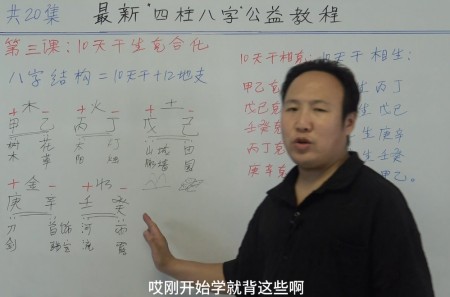 共20集
最新"四柱八字"公益教程
第三课：10天干生克合化
八字结构=10天干+12地支
10天干相克：
天干相生：
+木- +火- +土-
甲 乙 丙 丁 戊 己
甲乙克
生丙丁
戊己克
生戊己
树 花 太 灯
木 草 阳
壬癸克
生庚辛
+金- +水-
丙丁克
生壬癸
庚 辛 壬 癸
庚辛克
甲乙。
刀 首饰 河 雨
剑 流
哎刚开始学就背这些啊